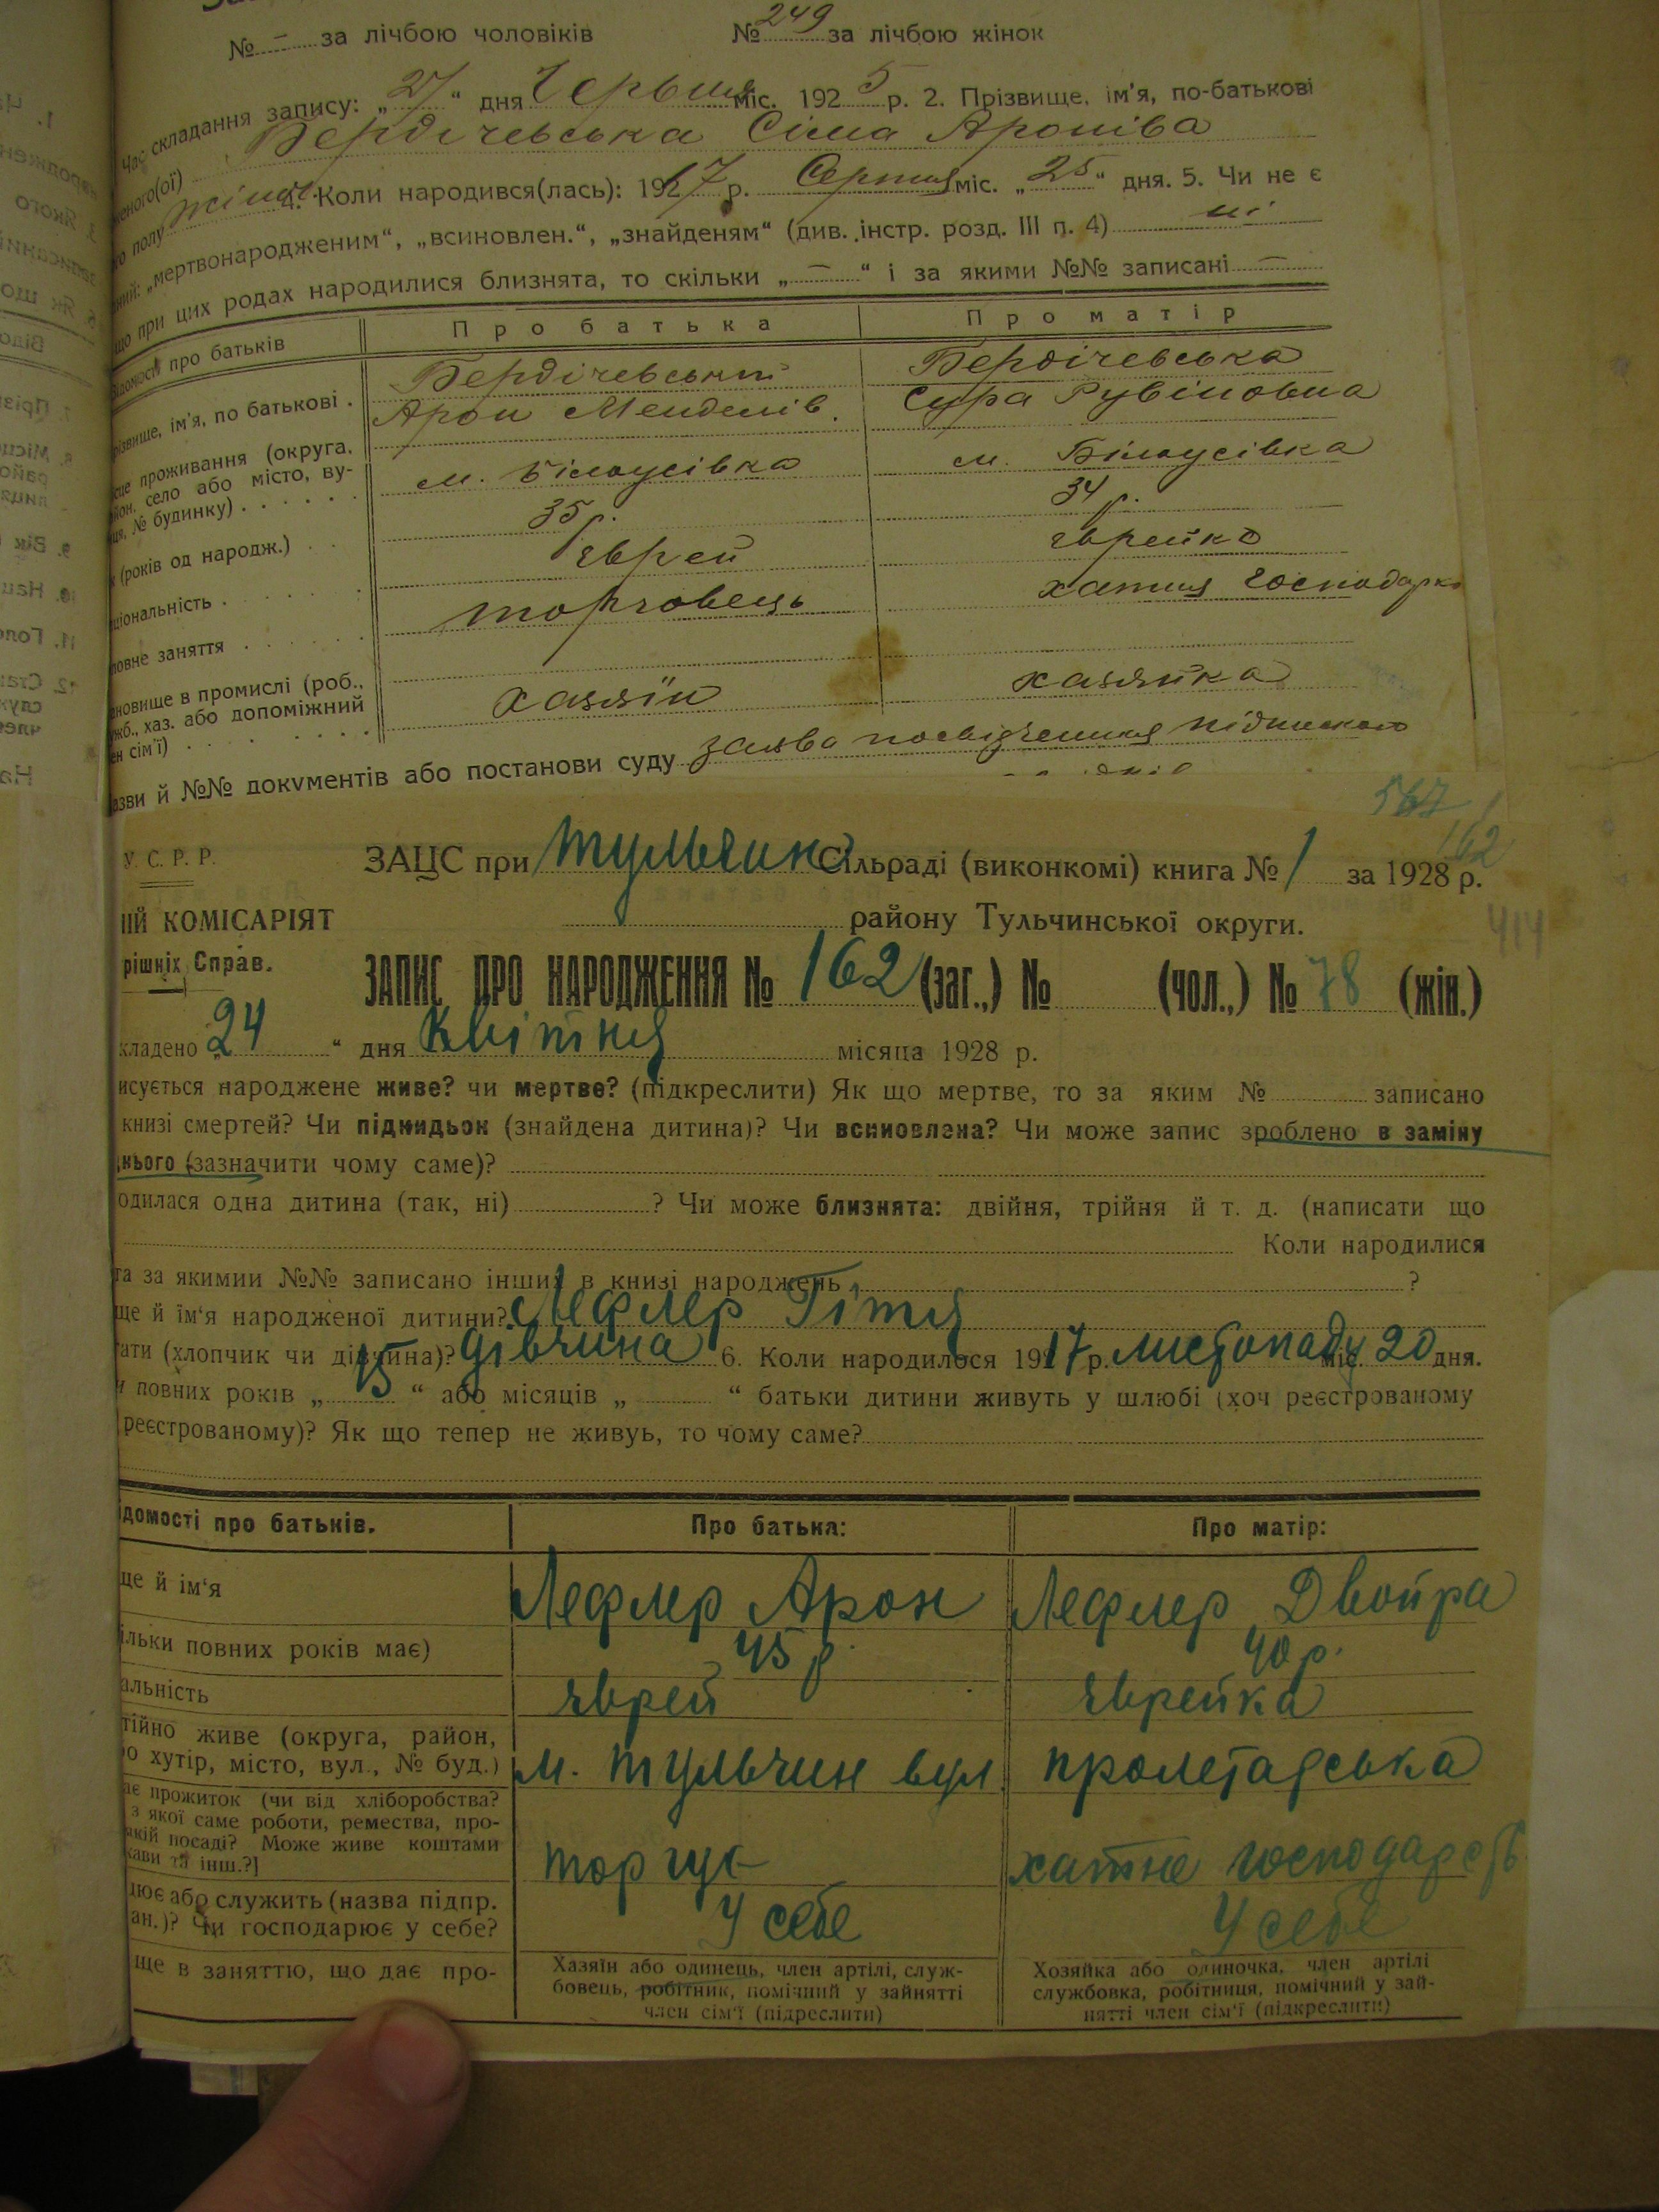 № – за лічбою чоловіків № 249 за лічбою жінок
Час складання запису: „27“ дня Червня міс. 1925 р. 2. Прізвище, ім'я, по-батькові
женого(ої) Бердічевська Сіма Аронівa
го полу жіноч. 4. Коли народився(лась): 1917 р. Серпня міс. „25“ дня. 5. Чи не є
„мертвонародженим“, „всиновлен.“, „знайденям“ (див. інстр. розд. III п. 4) ні
що при цих родах народилися близнята, то скільки „–“ і за якими №№ записані –
Відомості про батьків Про батька Про матір
різвище, ім'я, по батькові . Бердічевський Бердічевська
Арон Менделів. Сура Рувіновна
сце проживання (округа,
йон, село або місто, ву-
ця, № будинку) м. Білоусівка м. Білоусівка
к (років од народж.) 35 р. 34 р.
ціональність єврей єврейка
ловне заняття торговець хатня господарка
ановище в промислі (роб.,
жб., хаз. або допоміжний
ен сім'ї) хазяїн хазяйка
азви й №№ документів або постанови суду заява посвідчення
567
162
У. С. Р. Р. ЗАЦС при Тульчинс Сільраді (виконкомі) книга № 1 за 1928 р.
ИЙ КОМІСАРІЯТ району Тульчинської округи.
414
рішніх Справ.
ЗАПИС ПРО НАРОДЖЕННЯ № 162 (заг.,) № (чол.,) № 78 (жін.)
кладено „24“ дня Квітня місяца 1928 р.
исується народжене живе? чи мертве? (підкреслити) Як що мертве, то за яким № записано
книзі смертей? Чи підкидьок (знайдена дитина)? Чи всиновлена? Чи може запис зроблено в заміну
нього (зазначити чому саме)?
одилася одна дитина (так, ні) ? Чи може близнята: двійня, трійня й т. д. (написати що
Коли народилися
та за якимии №№ записано інших в книзі народжень ?
ще й їм'я народженої дитини? Лефлер Гітя
ати (хлопчик чи дівчина)? дівчина 6. Коли народилося 1917 р. листопаду міс. 20 дня.
и повних років „15“ або місяців „ “ батьки дитини живуть у шлюбі (хоч реєстрованому
реєстрованому)? Як що тепер не живуь, то чому саме?
ідомості про батьків. Про батька: Про матір:
ще й ім'я Лефлер Арон Лефлер Двойра
ільки повних років має) 45 р. 40 р.
альність єврей єврейка
тійно живе (округа, район,
о хутір, місто, вул., № буд.) м. Тульчин вул. пролетарська
ає прожиток (чи від хліборобства?
з якої саме роботи, ремества, про-
якій посаді? Може живе коштами
жави та інш.?] торгує хатнє господарств
цює або служить (назва підпр.
ан.)? Чи господарює у себе? У себе У себе
ще в заняттю, що дає про-
Хазяїн або одинець, член артілі, служ-
бовець, робітник, помічний у зайнятті
член сім'ї (підреслити)
Хозяйка або одиночка, член артілі
службовка, робітниця, помічний у зай-
нятті член сім'ї (підкреслити)